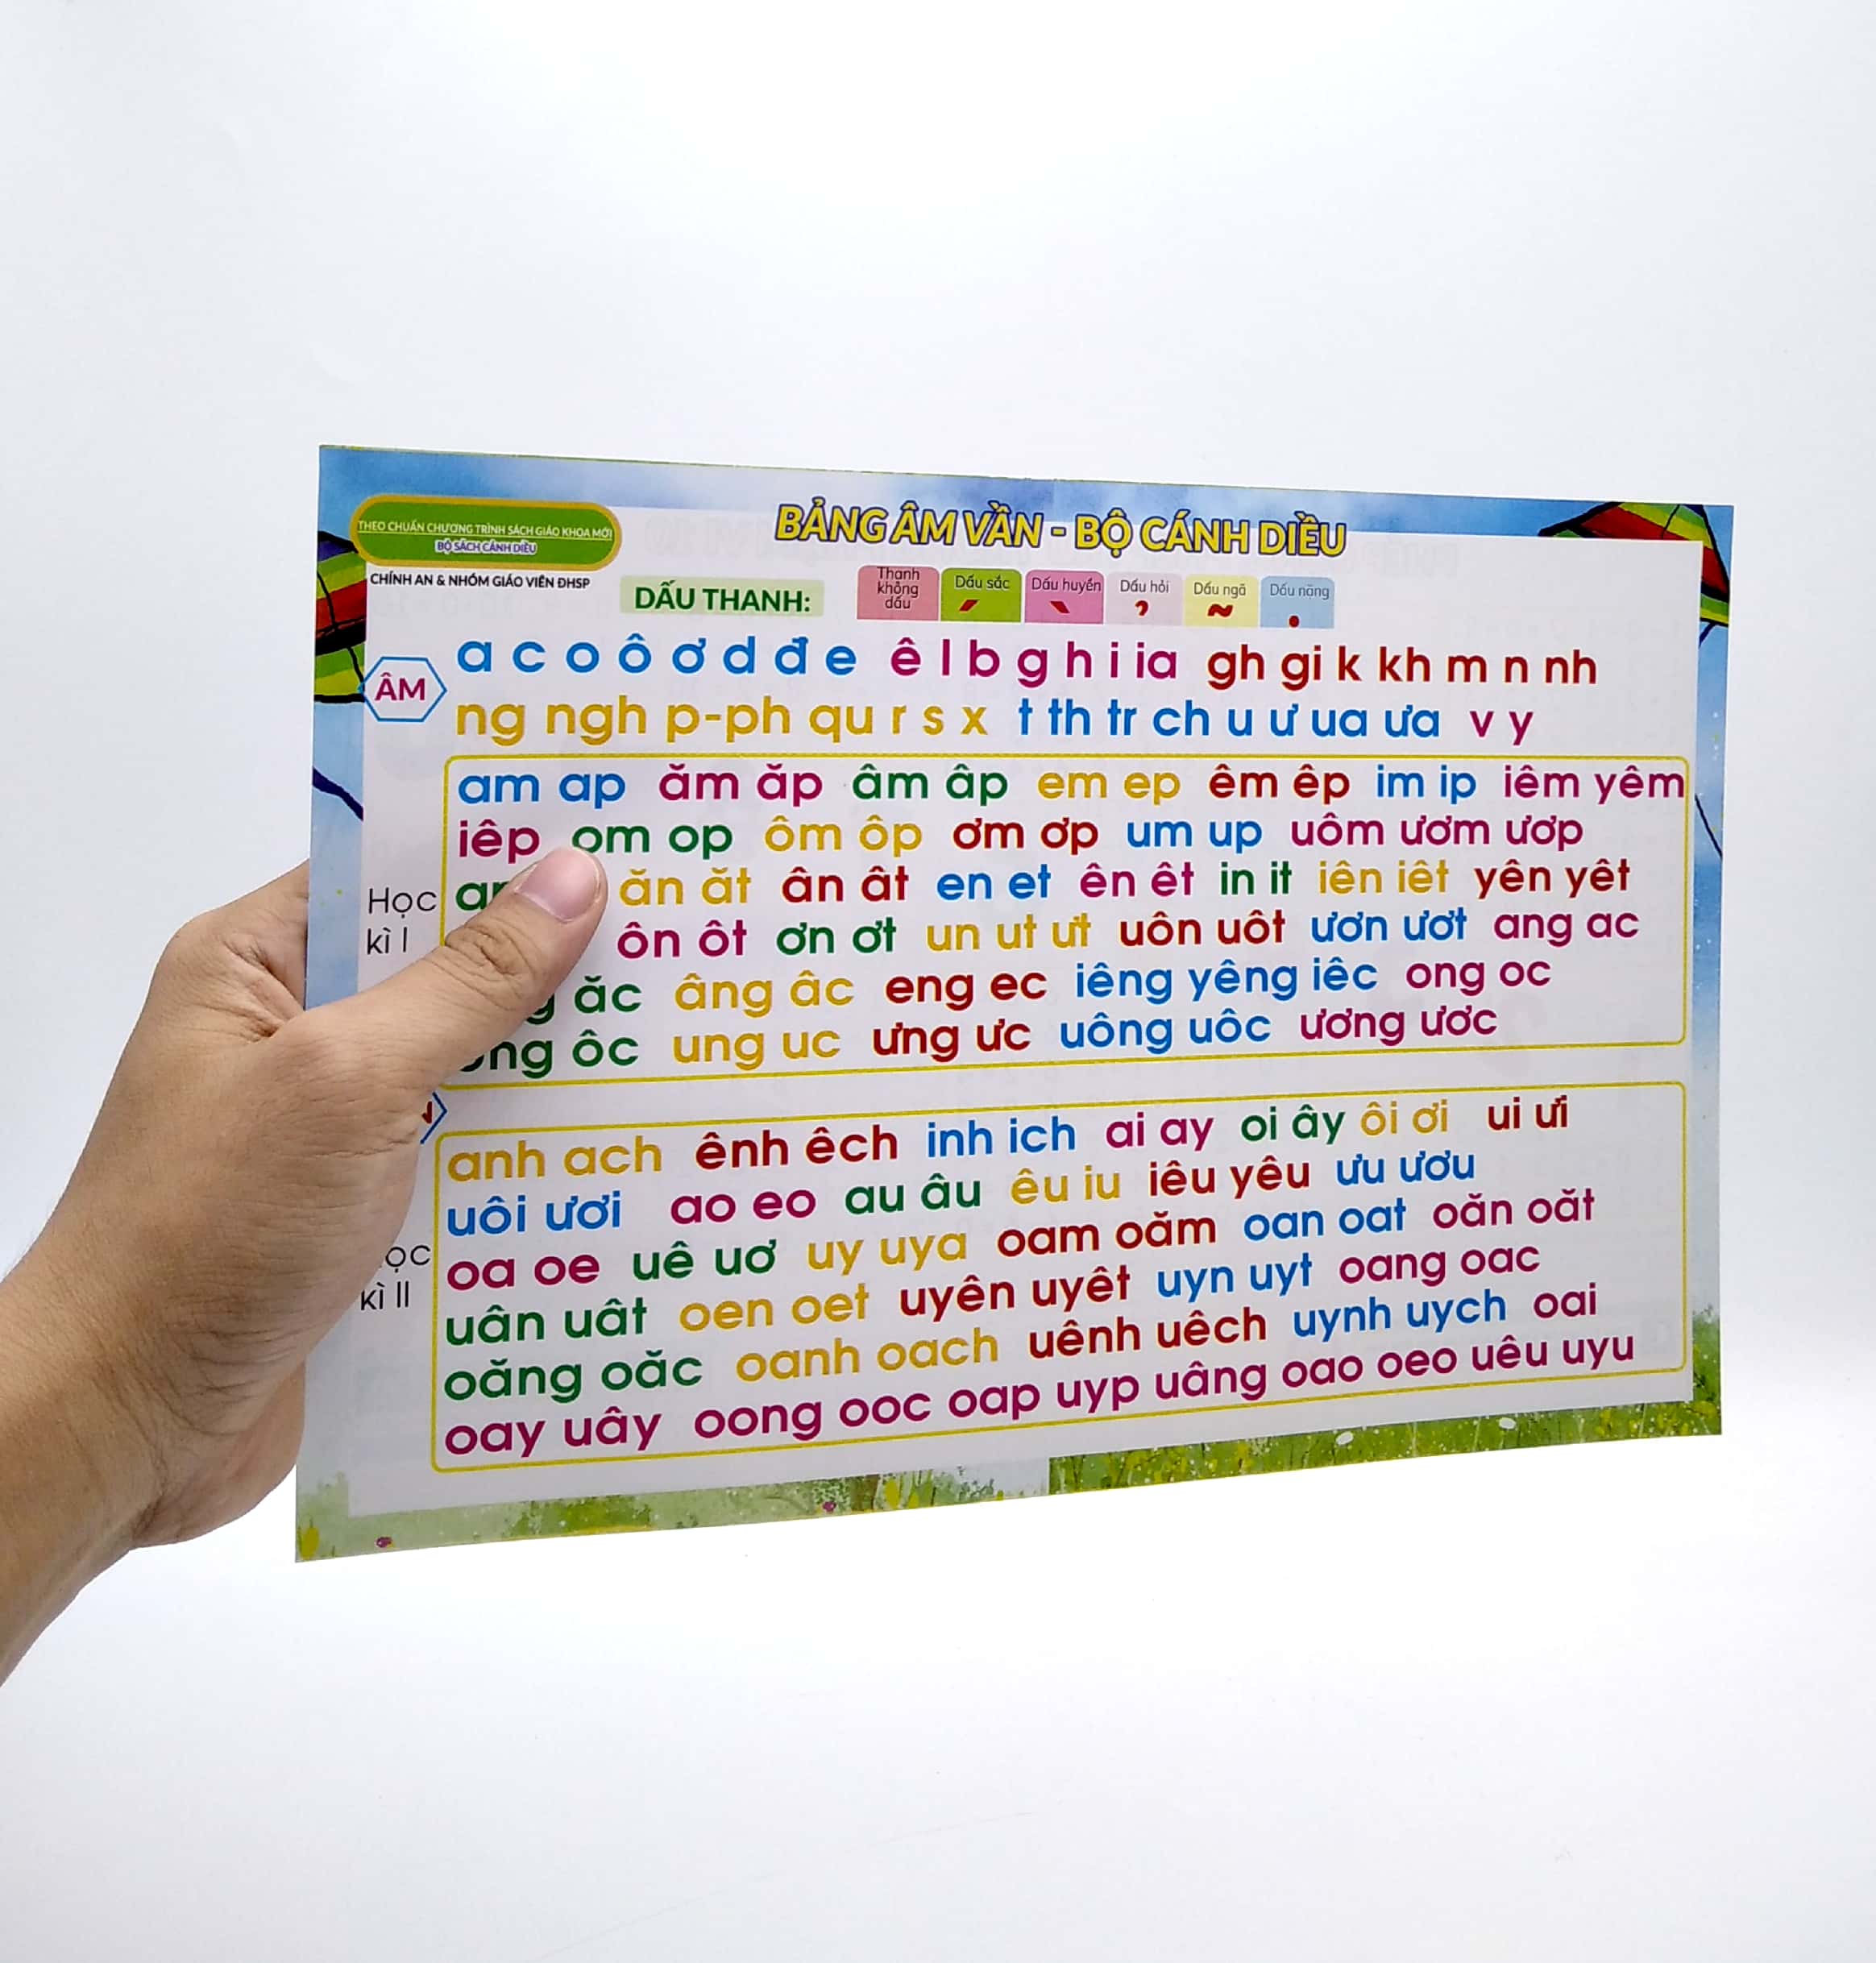 BẢNG ÂM VẦN - BỘ CÁNH DIỀU
THEO CHUẨN CHƯƠNG TRÌNH SÁCH GIÁO KHOA MỚI
BỘ SÁCH CÁNH DIỀU
CHÍNH AN & NHÓM GIÁO VIÊN ĐHSP
DẤU THANH:
Thanh không dấu
Dấu sắc
Dấu huyền
Dấu hỏi
Dấu ngã
Dấu nặng
ÂM
a c o ô ơ d đ e ê l b g h i ia gh gi k kh m n nh
ng ngh p-ph qu r s x t th tr ch u ư ua ưa v y
Học
kì I
am ap ăm ăp âm âp em ep êm êp im ip iêm yêm
iêp om op ôm ôp ơm ơp um up uôm ươm ươp
ăn ăt ân ât en et ên êt in it iên iêt yên yêt
ôn ôt ơn ơt un ut ưt uôn uôt ươn ươt ang ac
ăc âng âc eng ec iêng yêng iêc ong oc
ôc ung uc ưng ưc uông uôc ương ươc
kì II
anh ach ênh êch inh ich ai ay oi ây ôi ơi ui ưi
uôi ươi ao eo au âu êu iu iêu yêu ưu ươu
oa oe uê uơ uy uya oam oăm oan oat oăn oăt
uân uât oen oet uyên uyêt uyn uyt oang oac
oăng oăc oanh oach uênh uêch uynh uych oai
oay uây oong ooc oap uyp uâng oao oeo uêu uyu